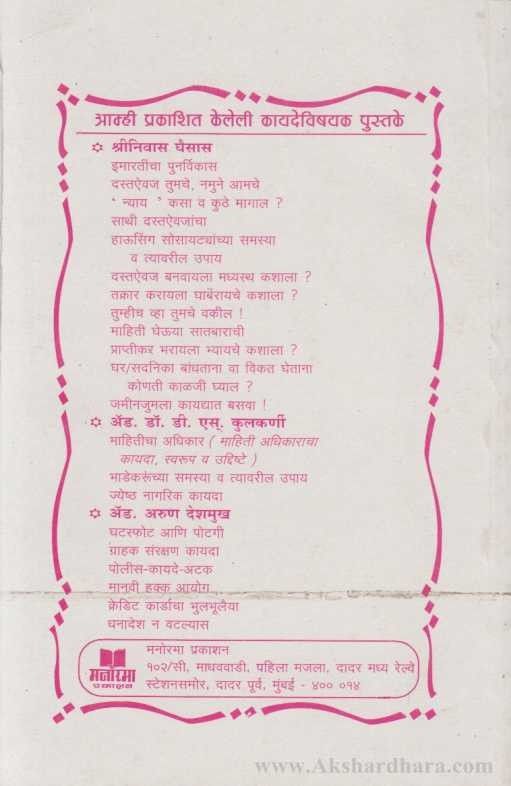 आम्ही प्रकाशित केलेली कायदेविषयक पुस्तके
✡ श्रीनिवास घैसास
इमारतींचा पुनर्विकास
दस्तऐवज तुमचे, नमुने आमचे
‘ न्याय ’ कसा व कुठे मागाल ?
साथी दस्तऐवजांचा
हाऊसिंग सोसायट्यांच्या समस्या
व त्यावरील उपाय
दस्तऐवज बनवायला मध्यस्थ कशाला ?
तक्रार करायला घाबेरायचे कशाला ?
तुम्हीच व्हा तुमचे वकील !
माहिती घेऊया सातबाराची
प्राप्तीकर भरायला भ्यायचे कशाला ?
घर/सदनिका बांधताना वा विकत घेताना
कोणती काळजी घ्याल ?
जमीनजुमला कायद्यात बसवा !
✡ अ‍ॅड. डॉ. डी. एस्. कुलकर्णी
माहितीचा अधिकार ( माहिती अधिकाराचा
कायदा, स्वरूप व उद्दिष्टे )
भाडेकरूंच्या समस्या व त्यावरील उपाय
ज्येष्ठ नागरिक कायदा
✡ अ‍ॅड. अरुण देशमुख
घटस्फोट आणि पोटगी
ग्राहक संरक्षण कायदा
पोलीस-कायदे-अटक
मानवी हक्क आयोग
क्रेडिट कार्डाचा भुलभूलैया
धनादेश न वटल्यास
मनोरमा प्रकाशन
मनोरमा प्रकाशन
१०२/सी, माधववाडी, पहिला मजला, दादर मध्य रेल्वे
स्टेशनसमोर, दादर पूर्व, मुंबई - ४०० ०१४
www.Akshardhara.com